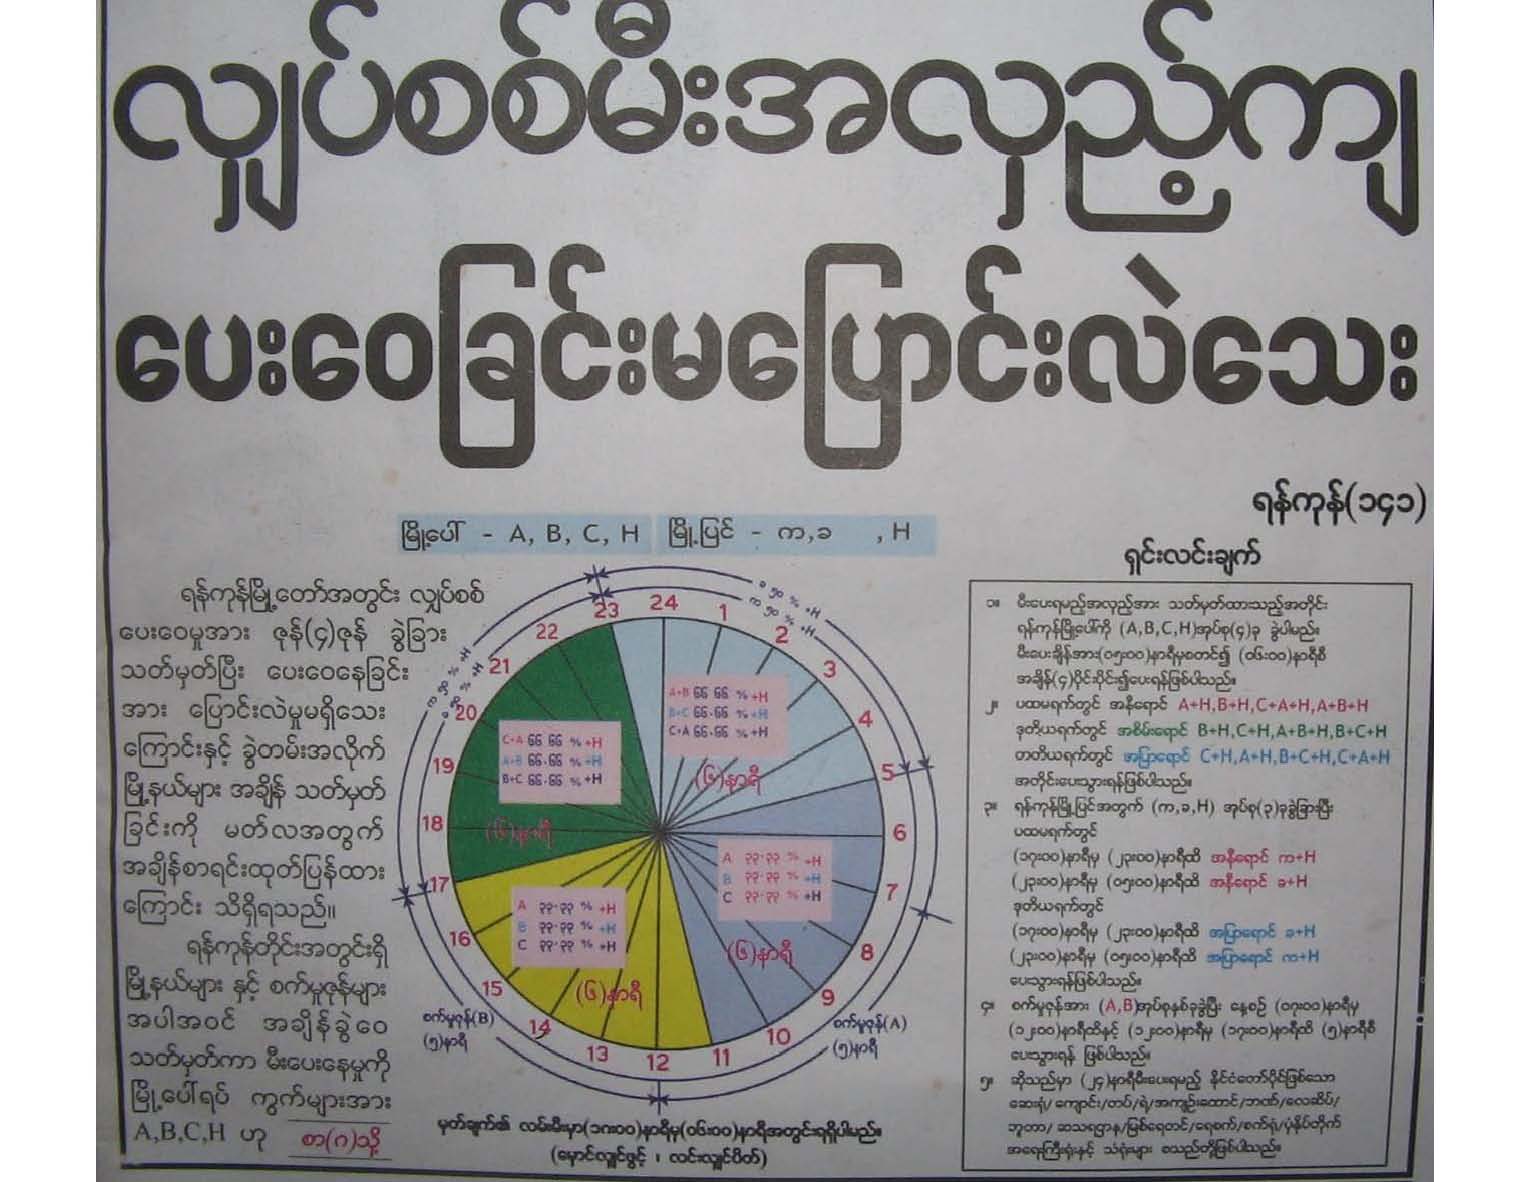 လျှပ်စစ်မီးအလှည့်ကျ
ပေးဝေခြင်းမပြောင်းလဲသေး
ရန်ကုန်(၁၄၁)
မြို့ပေါ် - A, B, C, H မြို့ပြင် - က,ခ ,H
ရန်ကုန်မြို့တော်အတွင်း လျှပ်စစ်
ပေးဝေမှုအား ဇုန်(၄)ဇုန် ခွဲခြား
သတ်မှတ်ပြီး ပေးဝေနေခြင်း
အား ပြောင်းလဲမှုမရှိသေး
ကြောင်းနှင့် ခွဲတမ်းအလိုက်
မြို့နယ်များ အချိန် သတ်မှတ်
ခြင်းကို မတ်လအတွက်
အချိန်စာရင်းထုတ်ပြန်ထား
ကြောင်း သိရှိရသည်။
ရန်ကုန်တိုင်းအတွင်းရှိ
မြို့နယ်များ နှင့် စက်မှုဇုန်များ
အပါအဝင် အချိန်ခွဲဝေ
သတ်မှတ်ကာ မီးပေးနေမှုကို
မြို့ပေါ်ရပ် ကွက်များအား
A,B,C,H ဟု စာ(ဂ)သို့
ခ ၅၀ % +H
က ၅၀ % +H
က ၅၀ % +H
ခ ၅၀ % +H
24
1
2
3
4
5
6
7
8
9
10
11
12
13
14
15
16
17
18
19
20
21
22
23
A+B ၆၆ ၆၆ % +H
B+C ၆၆.၆၆ % +H
C+A ၆၆.၆၆ % +H
(၆)နာရီ
C+A ၆၆ ၆၆ % +H
A+B ၆၆.၆၆ % +H
B+C ၆၆.၆၆ % +H
(၆)နာရီ
A ၃၃.၃၃ % +H
B ၃၃.၃၃ % +H
C ၃၃.၃၃ % +H
(၆)နာရီ
A ၃၃.၃၃ % +H
B ၃၃.၃၃ % +H
C ၃၃.၃၃ % +H
(၆)နာရီ
စက်မှုဇုန်(B)
(၅)နာရီ
စက်မှုဇုန်(A)
(၅)နာရီ
မှတ်ချက်။ လမ်းမီးမှာ(၁၈း၀၀)နာရီမှ(၀၆း၀၀)နာရီအတွင်းရရှိပါမည်။
(မှောင်လျှင်ဖွင့် ၊ လင်းလျှင်ပိတ်)
ရှင်းလင်းချက်
၁။ မီးပေးရမည့်အလှည့်အား သတ်မှတ်ထားသည့်အတိုင်း
ရန်ကုန်မြို့ပေါ်ကို (A,B,C,H)အုပ်စု(၄)ခု ခွဲပါမည်။
မီးပေးချိန်အား(၀၅း၀၀)နာရီမှစတင်၍ (၀၆း၀၀)နာရီစီ
အချိန်(၄)ပိုင်းပိုင်း၍ပေးရန်ဖြစ်ပါသည်။
၂။ ပထမရက်တွင် အနီရောင် A+H,B+H,C+A+H,A+B+H
ဒုတိယရက်တွင် အစိမ်းရောင် B+H,C+H,A+B+H,B+C+H
တတိယရက်တွင် အပြာရောင် C+H,A+H,B+C+H,C+A+H
အတိုင်းပေးသွားရန်ဖြစ်ပါသည်။
၃။ ရန်ကုန်မြို့ပြင်အတွက် (က,ခ,H) အုပ်စု(၃)ခုခွဲခြားပြီး
ပထမရက်တွင်
(၁၇း၀၀)နာရီမှ (၂၃း၀၀)နာရီထိ အနီရောင် က+H
(၂၃း၀၀)နာရီမှ (၀၅း၀၀)နာရီထိ အနီရောင် ခ+H
ဒုတိယရက်တွင်
(၁၇း၀၀)နာရီမှ (၂၃း၀၀)နာရီထိ အပြာရောင် ခ+H
(၂၃း၀၀)နာရီမှ (၀၅း၀၀)နာရီထိ အပြာရောင် က+H
ပေးသွားရန်ဖြစ်ပါသည်။
၄။ စက်မှုဇုန်အား (A,B)အုပ်စုနှစ်ခုခွဲပြီး နေ့စဉ် (၀၇း၀၀)နာရီမှ
(၁၂း၀၀)နာရီထိနှင့် (၁၂း၀၀)နာရီမှ (၁၇း၀၀)နာရီထိ (၅)နာရီစီ
ပေးသွားရန် ဖြစ်ပါသည်။
၅။ ဆိုသည်မှာ (၂၄)နာရီမီးပေးရမည့် နိုင်ငံတော်ပိုင်ဖြစ်သော
ဆေးရုံ/ ကျောင်း/တပ်/ရဲ/အကျဉ်းထောင်/ဘဏ်/လေဆိပ်/
ဘူတာ/ ဆသရဌာန/မြစ်ရေတင်/ရေစက်/စက်ရုံ/ပုံနှိပ်တိုက်
အရေးကြီးရုံးနှင့် သံရုံးများ စသည်တို့ဖြစ်ပါသည်။